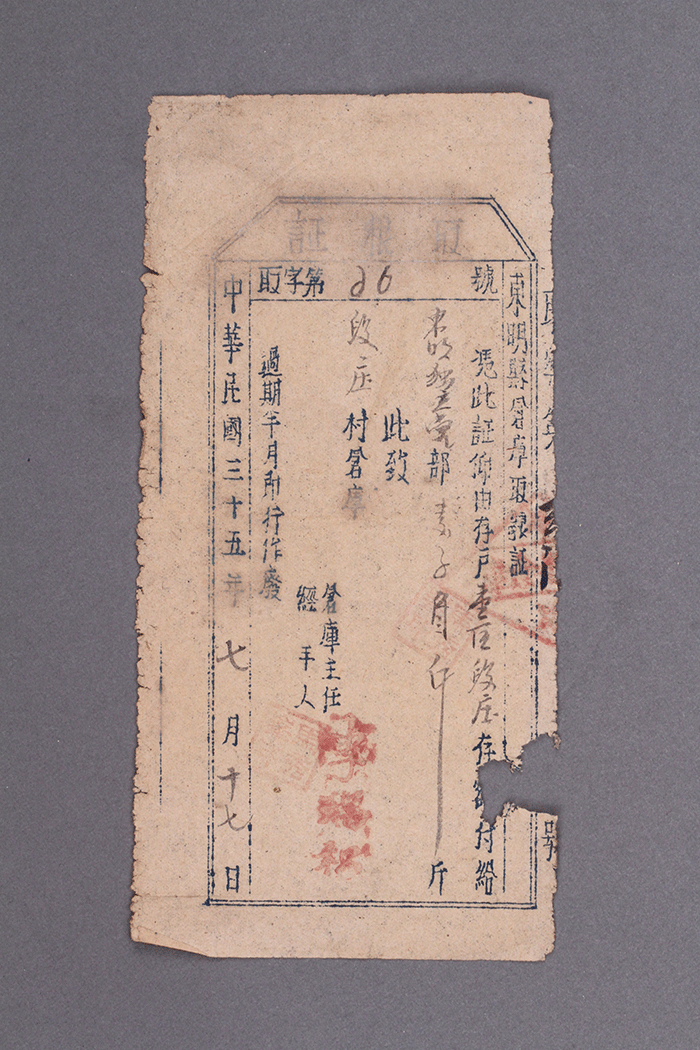 取粮証
取字第26號
東明縣倉庫取粮証
憑此証仰由存戶壹区段庄存粮付給
部 麦子 斤
此致
段庄村倉庫
倉庫主任
經手人
過期半月即行作廢
中華民國三十五年七月十七日
號